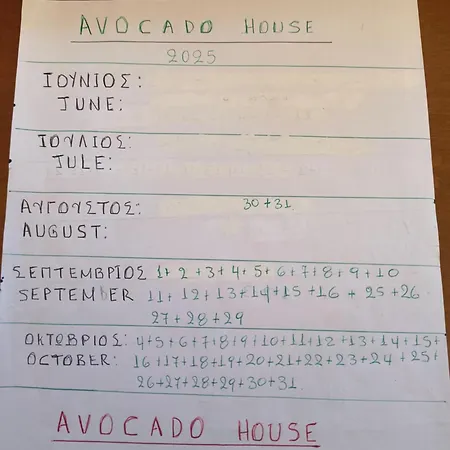 AVOCADO HOUSE
2025
ΙΟΥΝΙΟΣ:
JUNE:
ΙΟΥΛΙΟΣ:
JULE:
ΑΥΓΟΥΣΤΟΣ: 30+31
AUGUST:
ΣΕΠΤΕΜΒΡΙΟΣ 1+2+3+4+5+6+7+8+9+10
SEPTEMBER 11+12+13+14+15+16+25+26
27+28+29
ΟΚΤΩΒΡΙΟΣ: 4+5+6+7+8+9+10+11+12+13+14+15+
OCTOBER: 16+17+18+19+20+21+22+23+24+25+
26+27+28+29+30+31
AVOCADO HOUSE